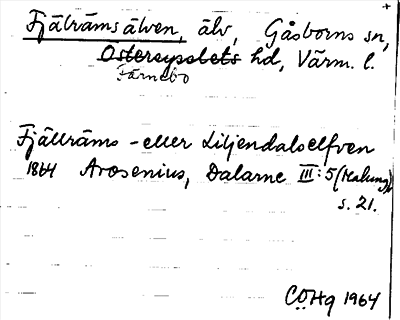 Fjälrämsälven, älv, Gåsborns sn,
Östersysslets hd, Värm. l.
Färnebo
Fjällräms- eller Liljendalselfven
1864 Arosenius, Dalarne III:5 (Malung),
s. 21.
CÖHq 1964